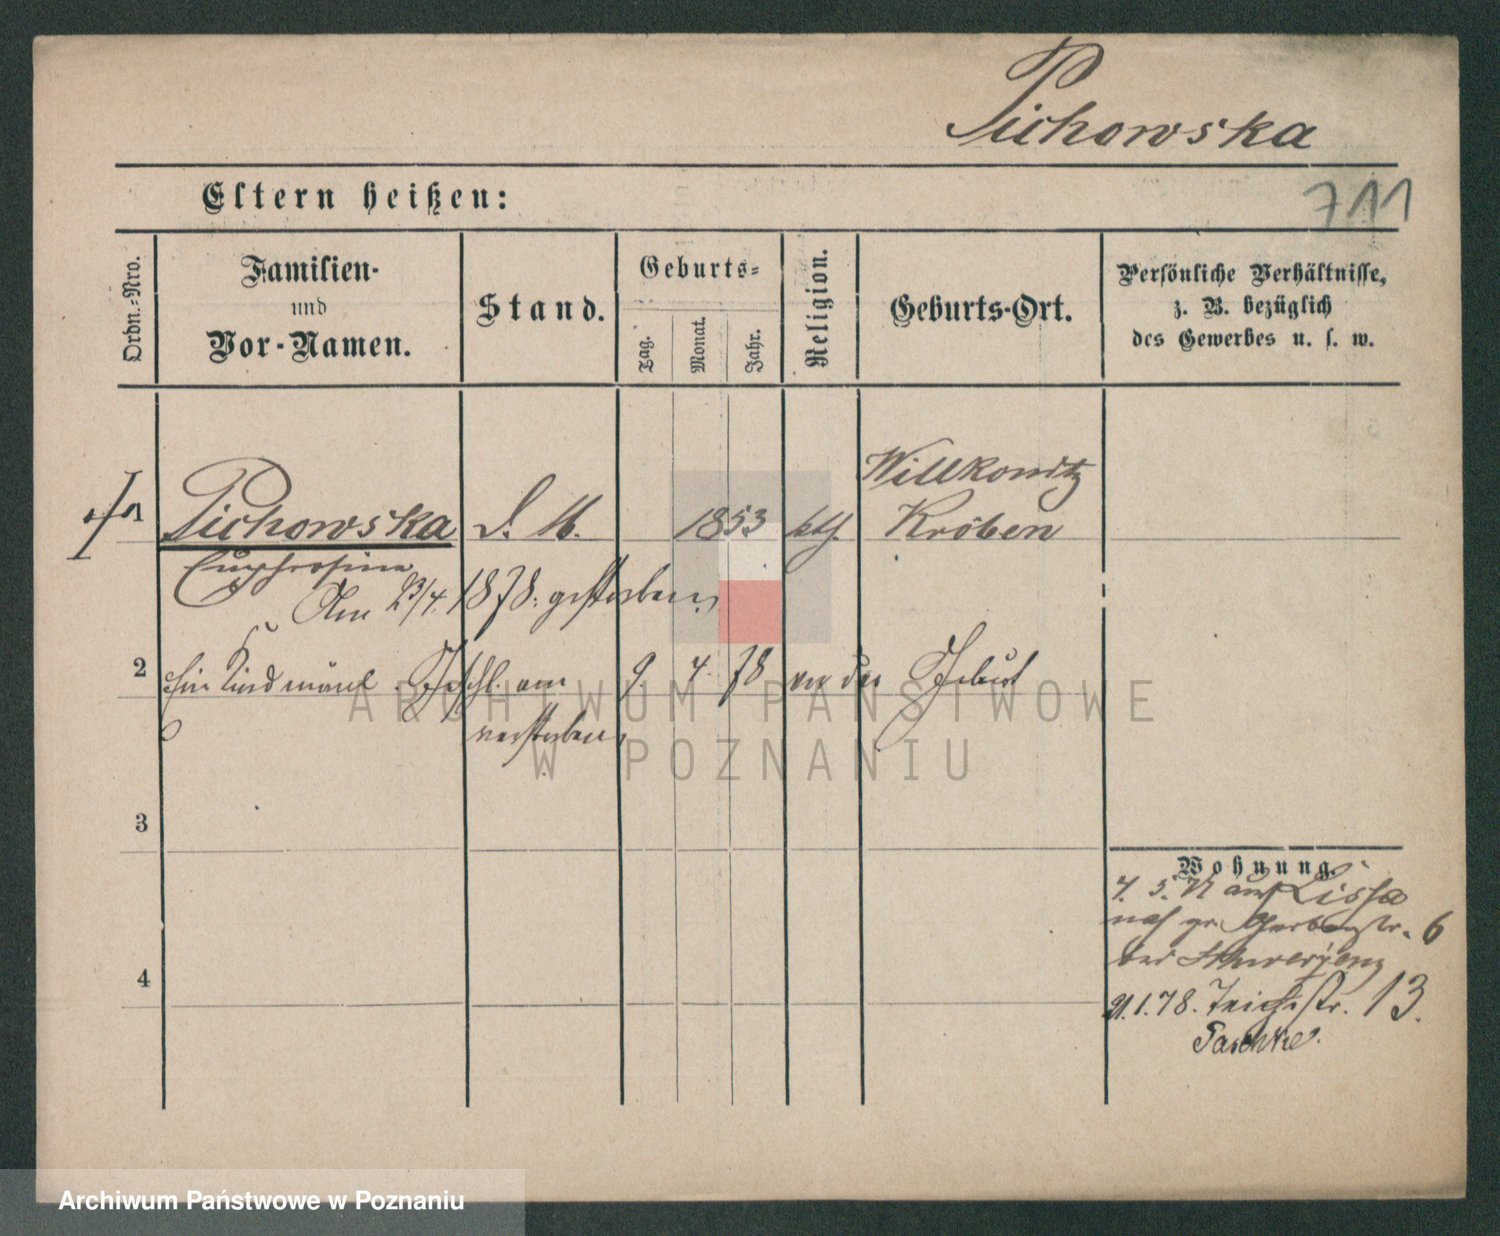 Pichowska
711
Eltern heißen:
Ordn.-Nro.
Familien-
und
Vor-Namen.
Stand.
Geburts-
Tag.
Monat.
Jahr.
Religion.
Geburts-Ort.
Persönliche Verhältnisse,
z. B. bezüglich
des Gewerbes u. s. w.
1 Pichowska D. M. 1853 kth Willkonitz
Kröben
Euphrosine
Am 23/4. 1878. gestorben.
2 Ein Kind männl. Geschl. am 9. 4. 78 vor der Geburt
verstorben.
3
4
Wohnung.
4. 5. 77 aus Lissa
nach gr. Gerberstr. 6
bei
21.1.78. Teichstr. 13.
Paschke.
ARCHIWUM PAŃSTWOWE
W POZNANIU
Archiwum Państwowe w Poznaniu